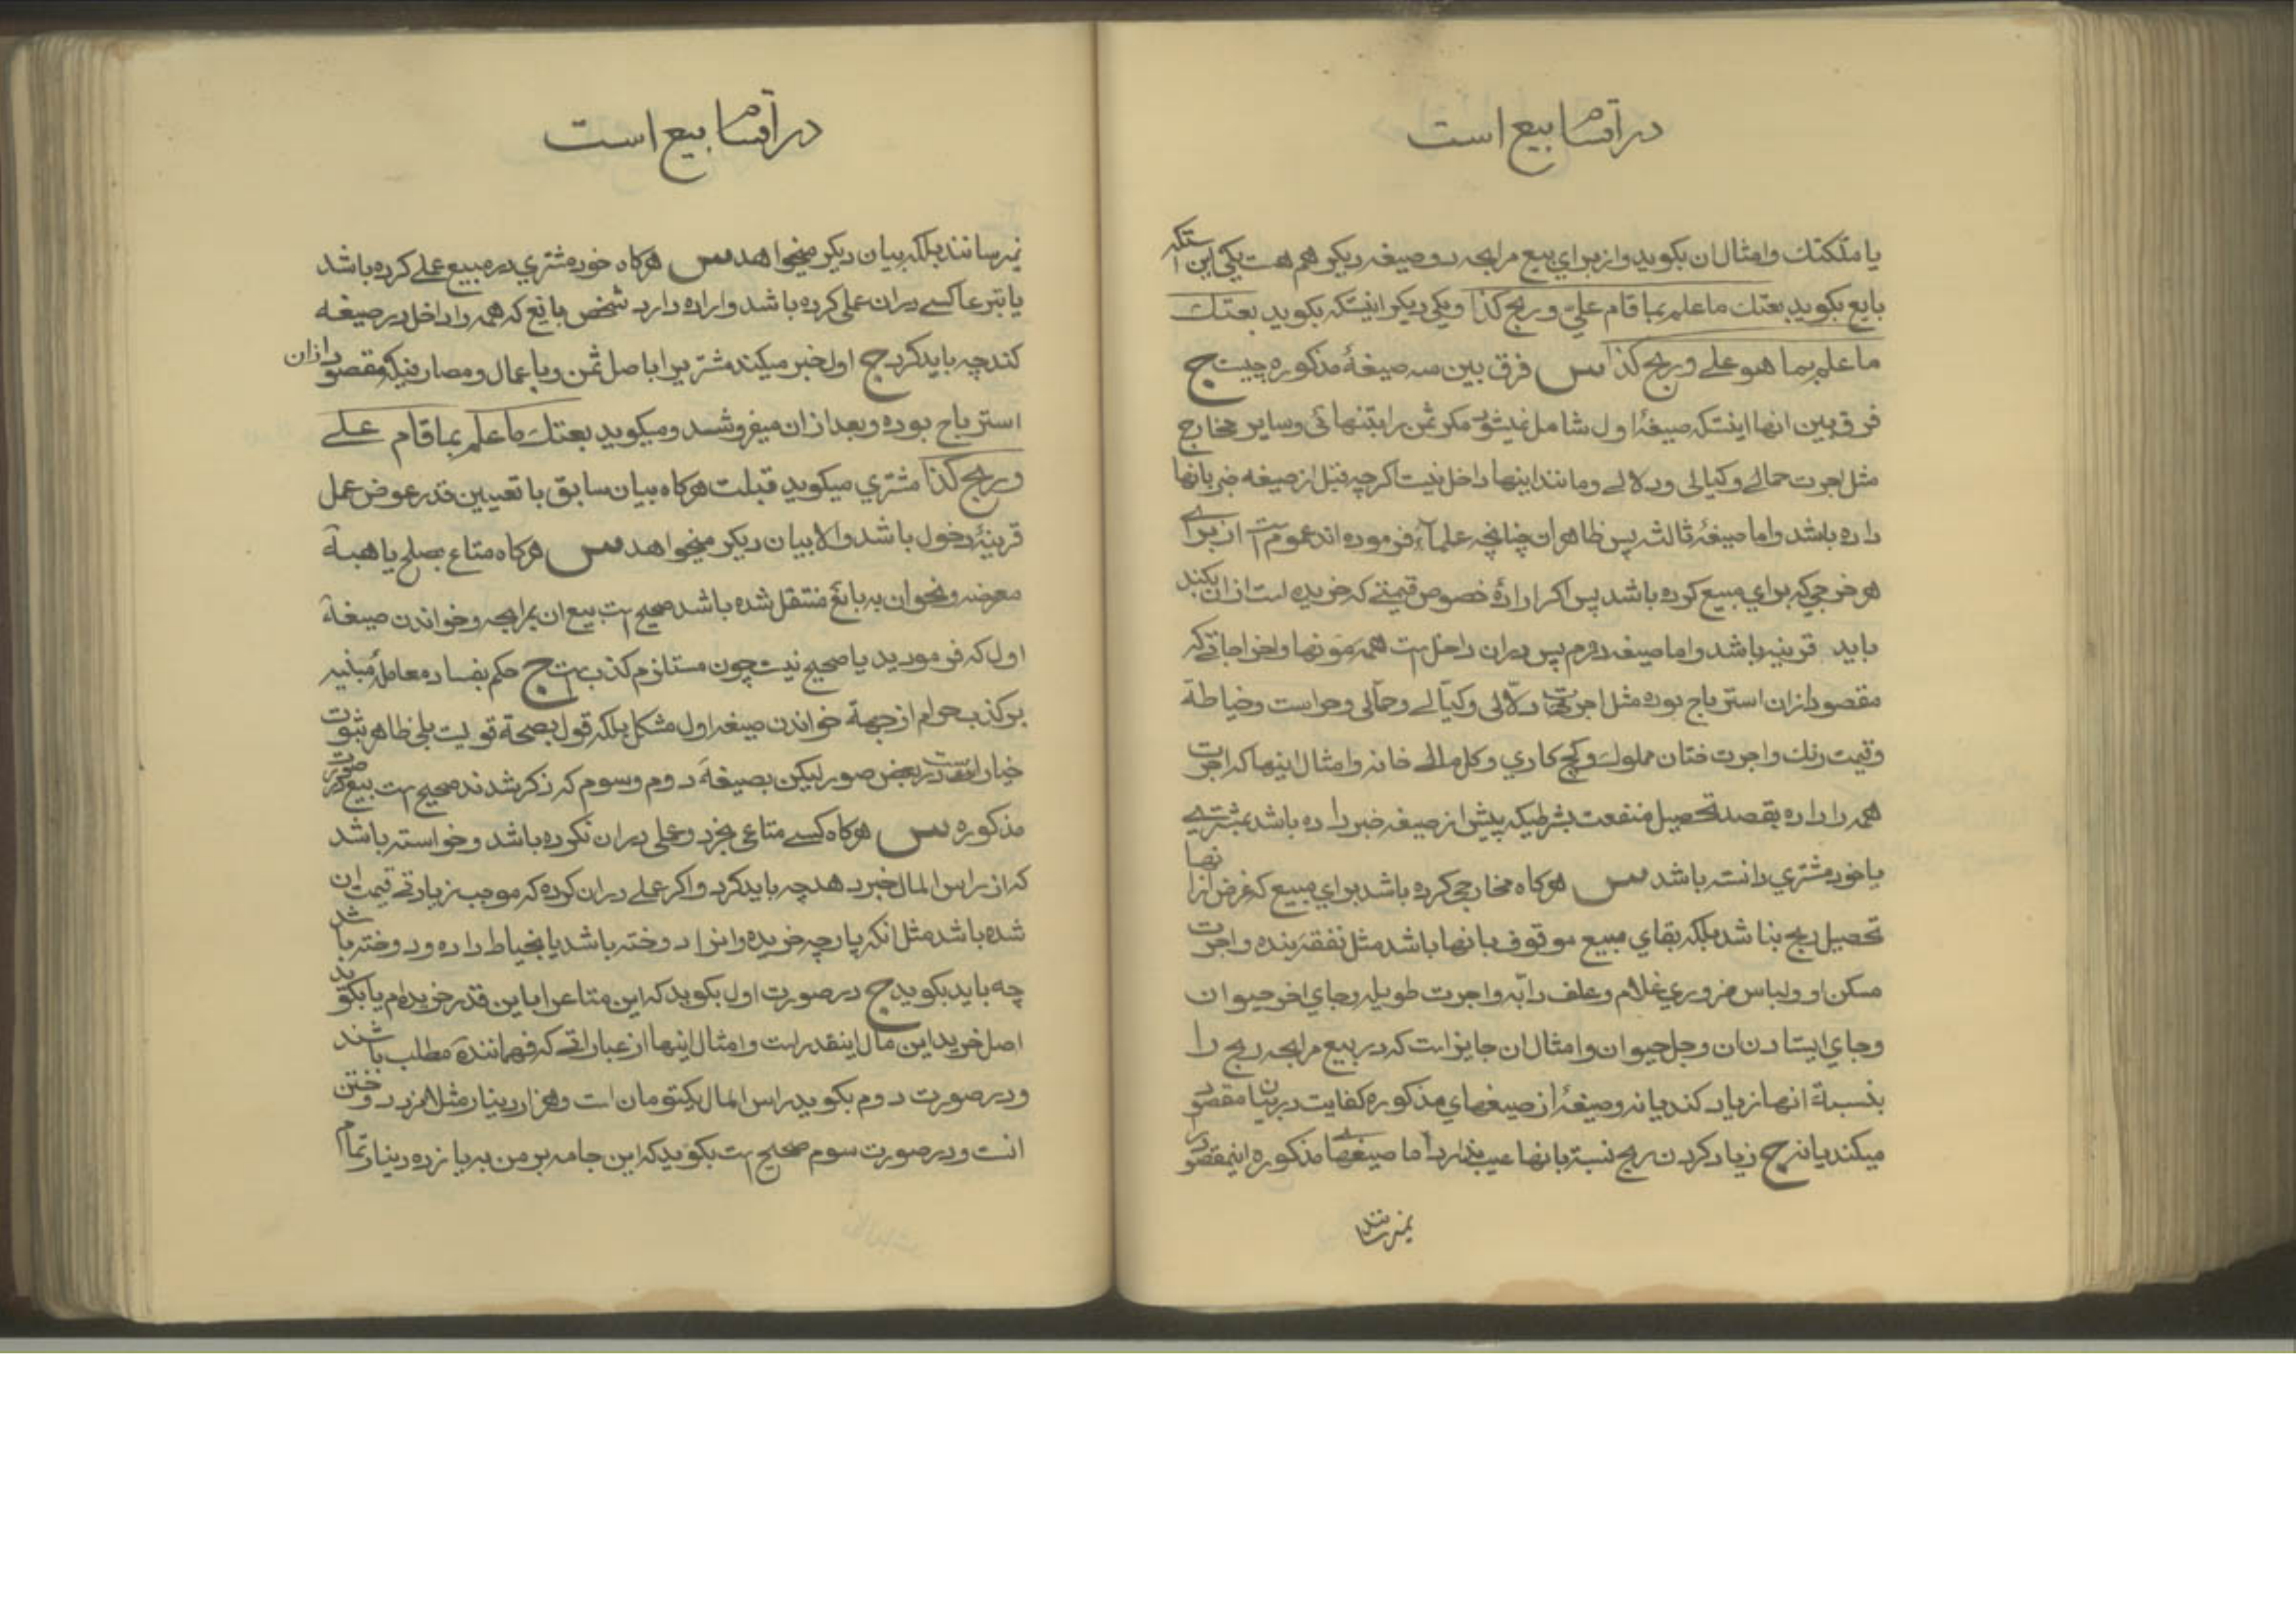 در اقسام بیع است
یا ملکتك وامثال ان بکوید واز برای بیع مرابحه دو صیغه دیکر هم هست یکی اینستکه
بایع بکوید بعتك ما علم بما قام علیّ وربح کذا ویکی دیکر اینستکه بکوید بعتك
ما علم بما هو علی وربح کذا س فرق بین سه صیغهٔ مذکوره چیست ج
فرق بین انها اینستکه صیغهٔ اول شامل نمیشود مکر ثمن را بتنهائی وسایر مخارج
مثل اجرت حمالی وکیالی ودلالی ومانند اینها داخل نیست اکرچه قبل از صیغه خبر بانها
داده باشد واما صیغهٔ ثالثه پس ظاهر ان چنانچه علمآء فرموده اند عموم است از برای
هر خرجی که برای مبیع کرده باشد پس اکر ارادهٔ خصوص قیمتی که خریده است از ان بکند
باید قرینه باشد واما صیغه دوم پس در ان داخل است همه مؤنها واخراجاتی که
مقصود از ان استرباح بوده مثل اجرتهای دلّالی وکیّالی وحمّالی وحراست وخیاطة
وقیمت رنك واجرت ختان مملوك وکج کاری وکل مالی خانه وامثال اینها که اجرت
همه را داده بقصد تحصیل منفعت بشرطیکه پیش از صیغه خبر داده باشد بمشتری
یا خود مشتری دانسته باشد س هرکاه مخارجی کرده باشد برای مبیع که غرض از انها
تحصیل ربح نباشد بلکه بقای مبیع موقوف بانها باشد مثل نفقه بنده واجرت
مسکن او ولباس ضروری غلام وعلف دابّه واجرت طویله وجای اخر حیوان
وجای ایستادن ان وجل حیوان وامثال ان جایز است که در بیع مرابحه ربح را
بنسبة انها زیاد کند یا نه وصیغهٔ از صیغهای مذکوره کفایت در بیان مقصود
میکند یا نه ج زیاد کردن ربح نسبة بانها عیب ندارد اما صیغهای مذکوره اینمقصود را
نمیرسانند
در اقسام بیع است
نمیرسانند بلکه بیان دیکر میخواهد س هرکاه خود مشتری در مبیع عملی کرده باشد
یا تبرعا کسی در ان عملی کرده باشد واراده دارد شخص بایع که همه را داخل در صیغه
کند چه باید کرد ج اول خبر میکند مشتریرا باصل ثمن وباعمال ومصارفیکه مقصود از ان
استرباح بوده وبعد از ان میفروشد ومیکوید بعتك ما علم بما قام علی
وربح کذا مشتری میکوید قبلت هرکاه بیان سابق با تعیین قدر عوض عمل
قرینهٔ دخول باشد والا بیان دیکر میخواهد س هرکاه متاع بصلح یا هبهٔ
معوضه ونحو ان به بائع منتقل شده باشد صحیح است بیع ان بمرابحه وخواندن صیغهٔ
اول که فرمودید یا صحیح نیست چون مستلزم کذب است ج حکم بفساد معاملهٔ مبنیه
بر کذب حرام از جهة خواندن صیغه اول مشکل بلکه قول بصحة قویست بلی ظاهر ثبوت
خیار است در بعض صور لیکن بصیغهٔ دوم وسوم که ذکر شدند صحیح است بیع در صورت
مذکوره س هرکاه کسی متاعی بخرد وعملی در ان نکرده باشد وخواسته باشد
که از راس المال خبر دهد چه باید کرد واکر عملی در ان کرده که موجب زیادتی قیمت ان
شده باشد مثل انکه پارچه خریده وانرا دوخته باشد یا بخیاط داده ودوخته باشد
چه باید بکوید ج در صورت اول بکوید که این متاعرا باین قدر خریده‌ام یا بکوید
اصل خرید این مال اینقدر است وامثال اینها از عباراتی که فهمانندهٔ مطلب باشند
ودر صورت دوم بکوید راس المال یکتومان است وهزار دینار مثلا مزد دوختن
انست ودر صورت سوم صحیح است بکوید که این جامه بر من به یازده دینار تمام